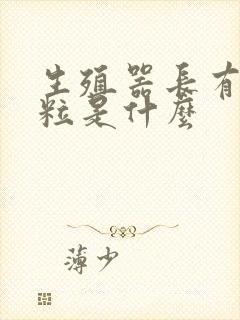 生殖器長有
粒是什麼
薄少